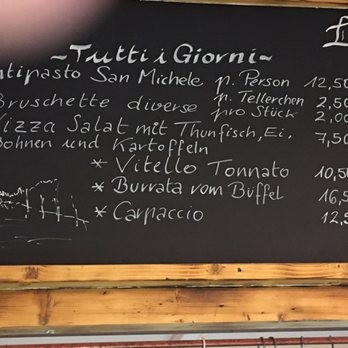 ~Tutti i Giorni~
ntipasto San Michele p. Person 12,50
Bruschette diverse p. Tellerchen 2,50
pro Stück 2,00
izza Salat mit Thunfisch, Ei, 7,50
Bohnen und Kartoffeln
* Vitello Tonnato 10,50
* Burrata vom Büffel 16,5
* Carpaccio 12,5